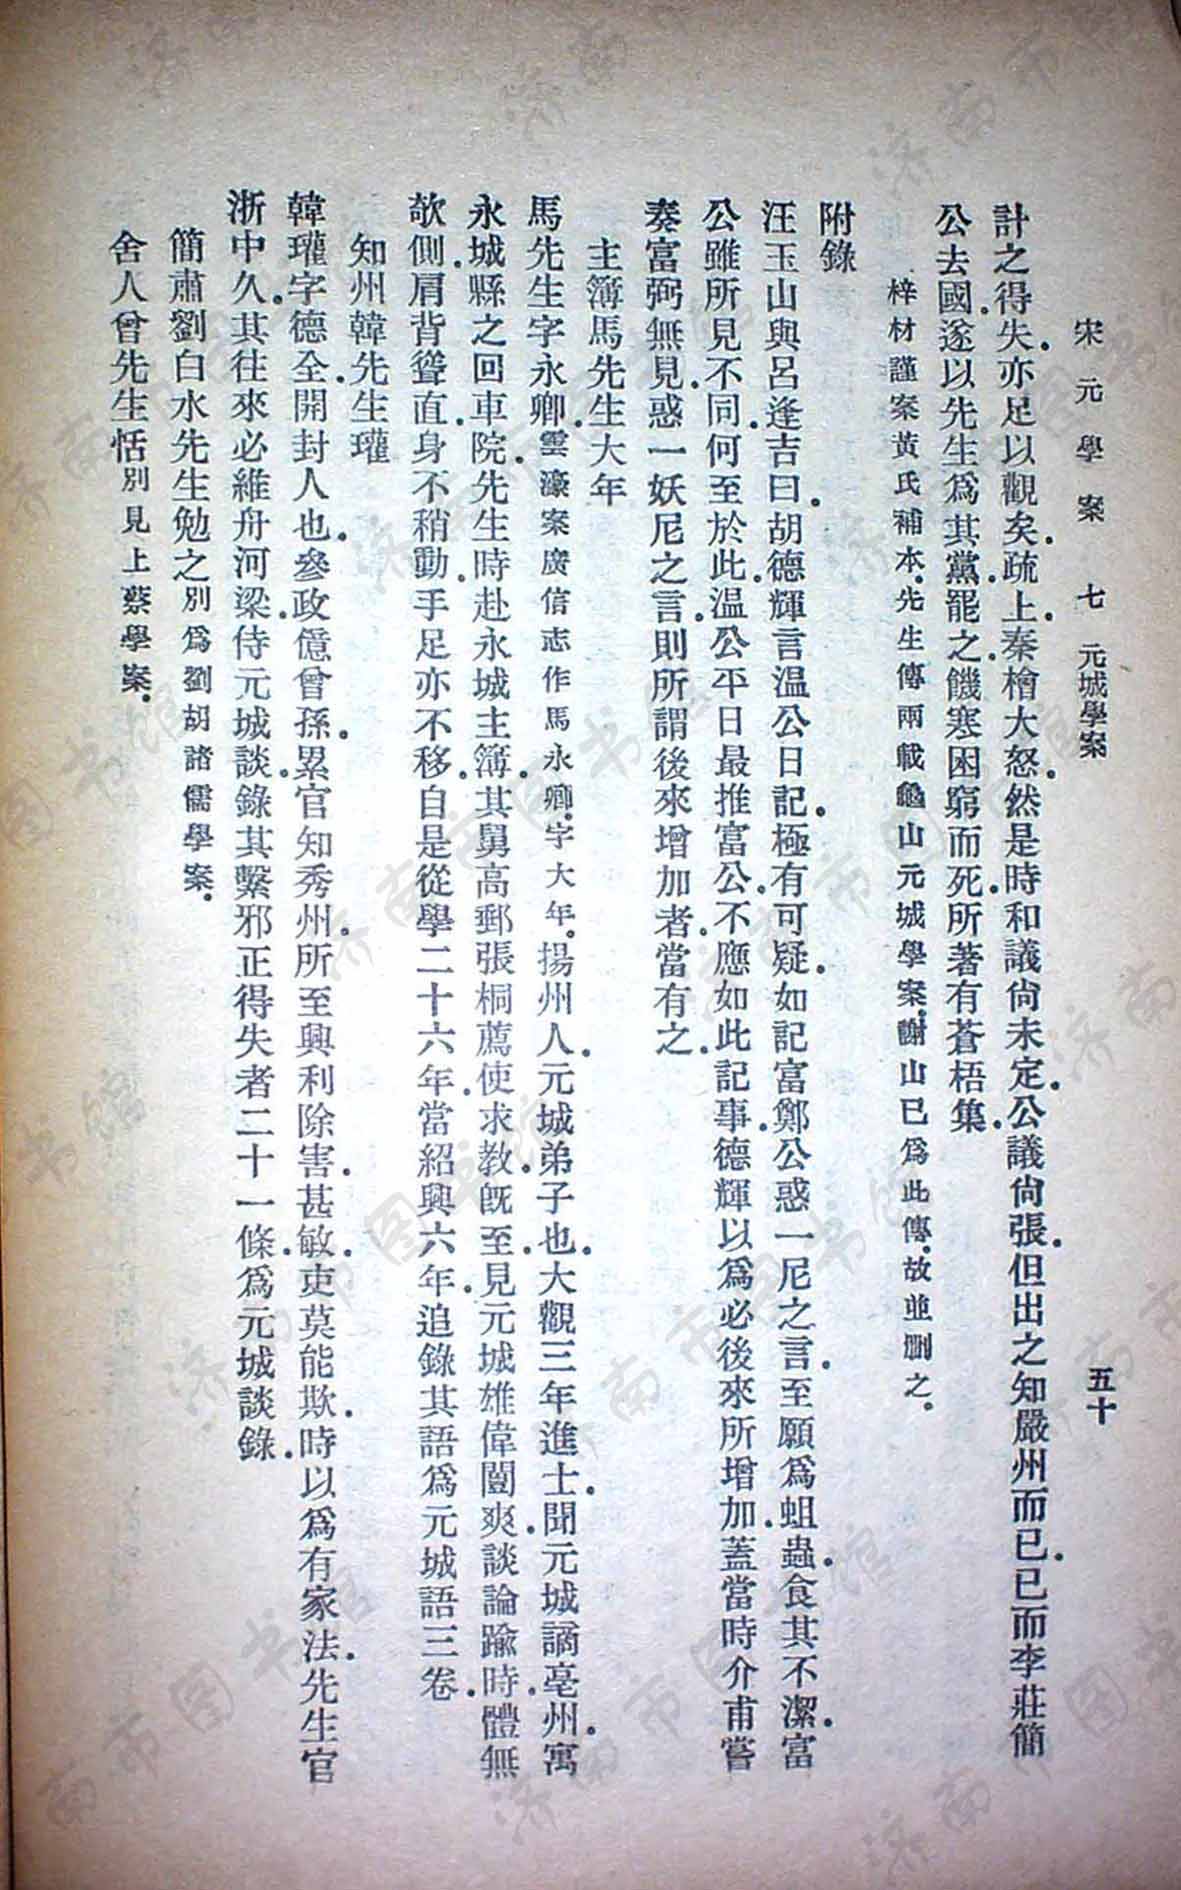 宋元學案　七　元城學案　五十
計之得失．亦足以觀矣．疏上．秦檜大怒．然是時和議尙未定．公議尙張．但出之知嚴州而已．已而李莊簡
公去國．遂以先生爲其黨．罷之．饑寒困窮而死．所著有蒼梧集．
梓材謹案黃氏補本．先生傳兩載龜山元城學案．謝山已爲此傳．故並刪之．
附錄
汪玉山與呂逢吉曰．胡德輝言溫公日記．極有可疑．如記富鄭公惑一尼之言．至願爲蛆蟲．食其不潔．富
公雖所見不同．何至於此．溫公平日最推富公．不應如此記事．德輝以爲必後來所增加．蓋當時介甫嘗
奏富弼無見．惑一妖尼之言．則所謂後來增加者．當有之．
主簿馬先生大年
馬先生字永卿．雲濠案廣信志作馬永卿．字大年．揚州人．元城弟子也．大觀三年進士．聞元城謫亳州．寓
永城縣之回車院．先生時赴永城主簿．其舅高郵張桐薦使求教．旣至．見元城雄偉闓爽．談論踰時．體無
欹側．肩背聳直．身不稍動．手足亦不移．自是從學二十六年．當紹興六年．追錄其語爲元城語三卷．
知州韓先生瓘
韓瓘．字德全．開封人也．參政億曾孫．累官知秀州．所至興利除害．甚敏．吏莫能欺．時以爲有家法．先生官
浙中久．其往來必維舟河梁．侍元城談．錄其繫邪正得失者二十一條．爲元城談錄．
簡肅劉白水先生勉之別爲劉胡諸儒學案．
舍人曾先生恬別見上蔡學案．
濟南市图书馆